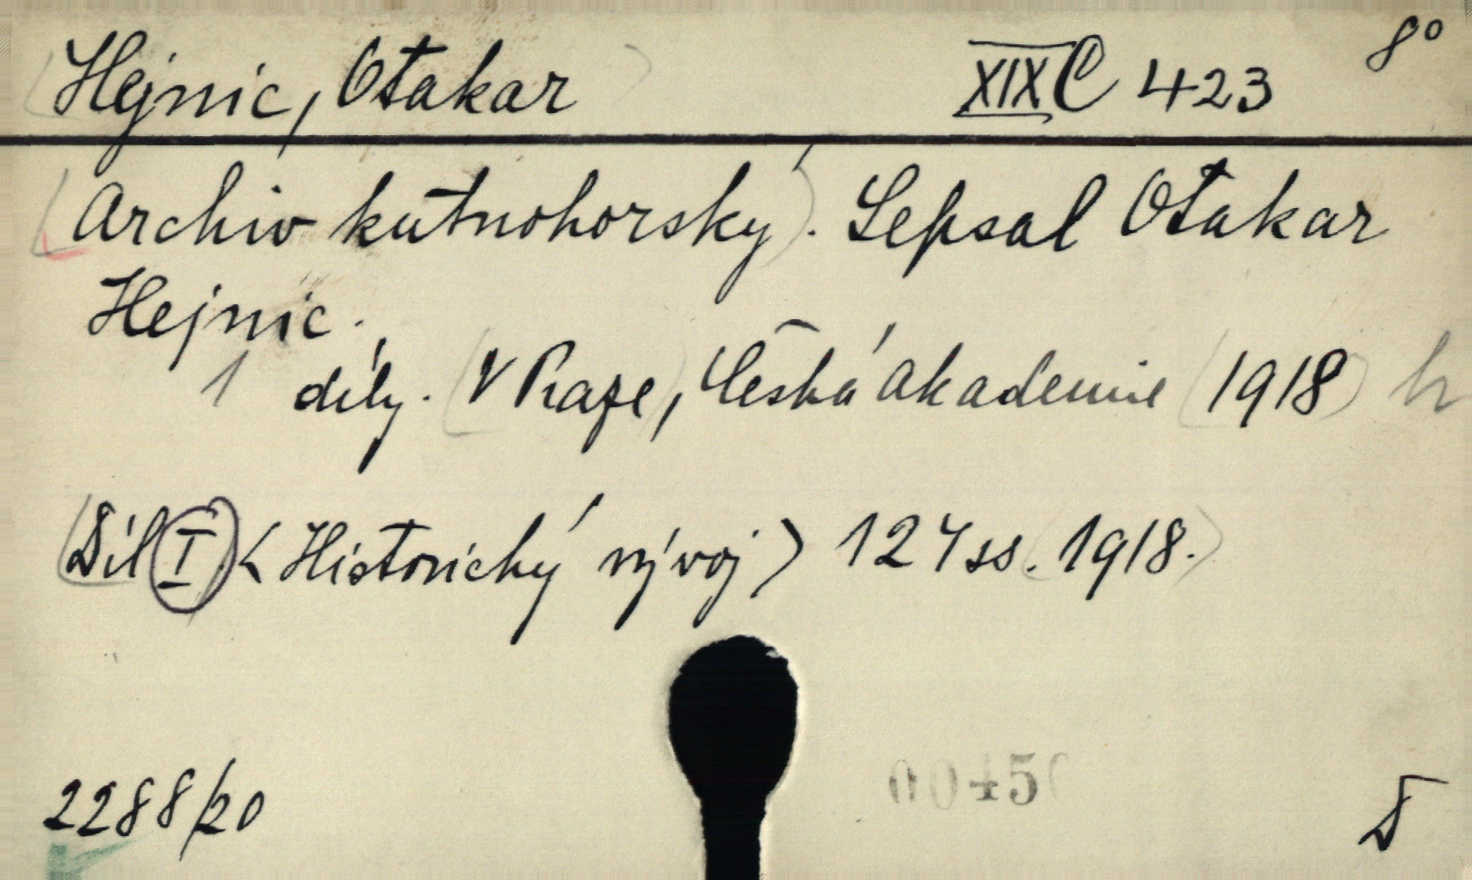 Hejnic, Otakar XIX C 423 8°
Archiv kutnohorský. Sepsal Otakar
Hejnic.
1 díly. V Praze, Česká akademie 1918
Díl I. < Historický vývoj > 124 ss. 1918.
0045
2288/20